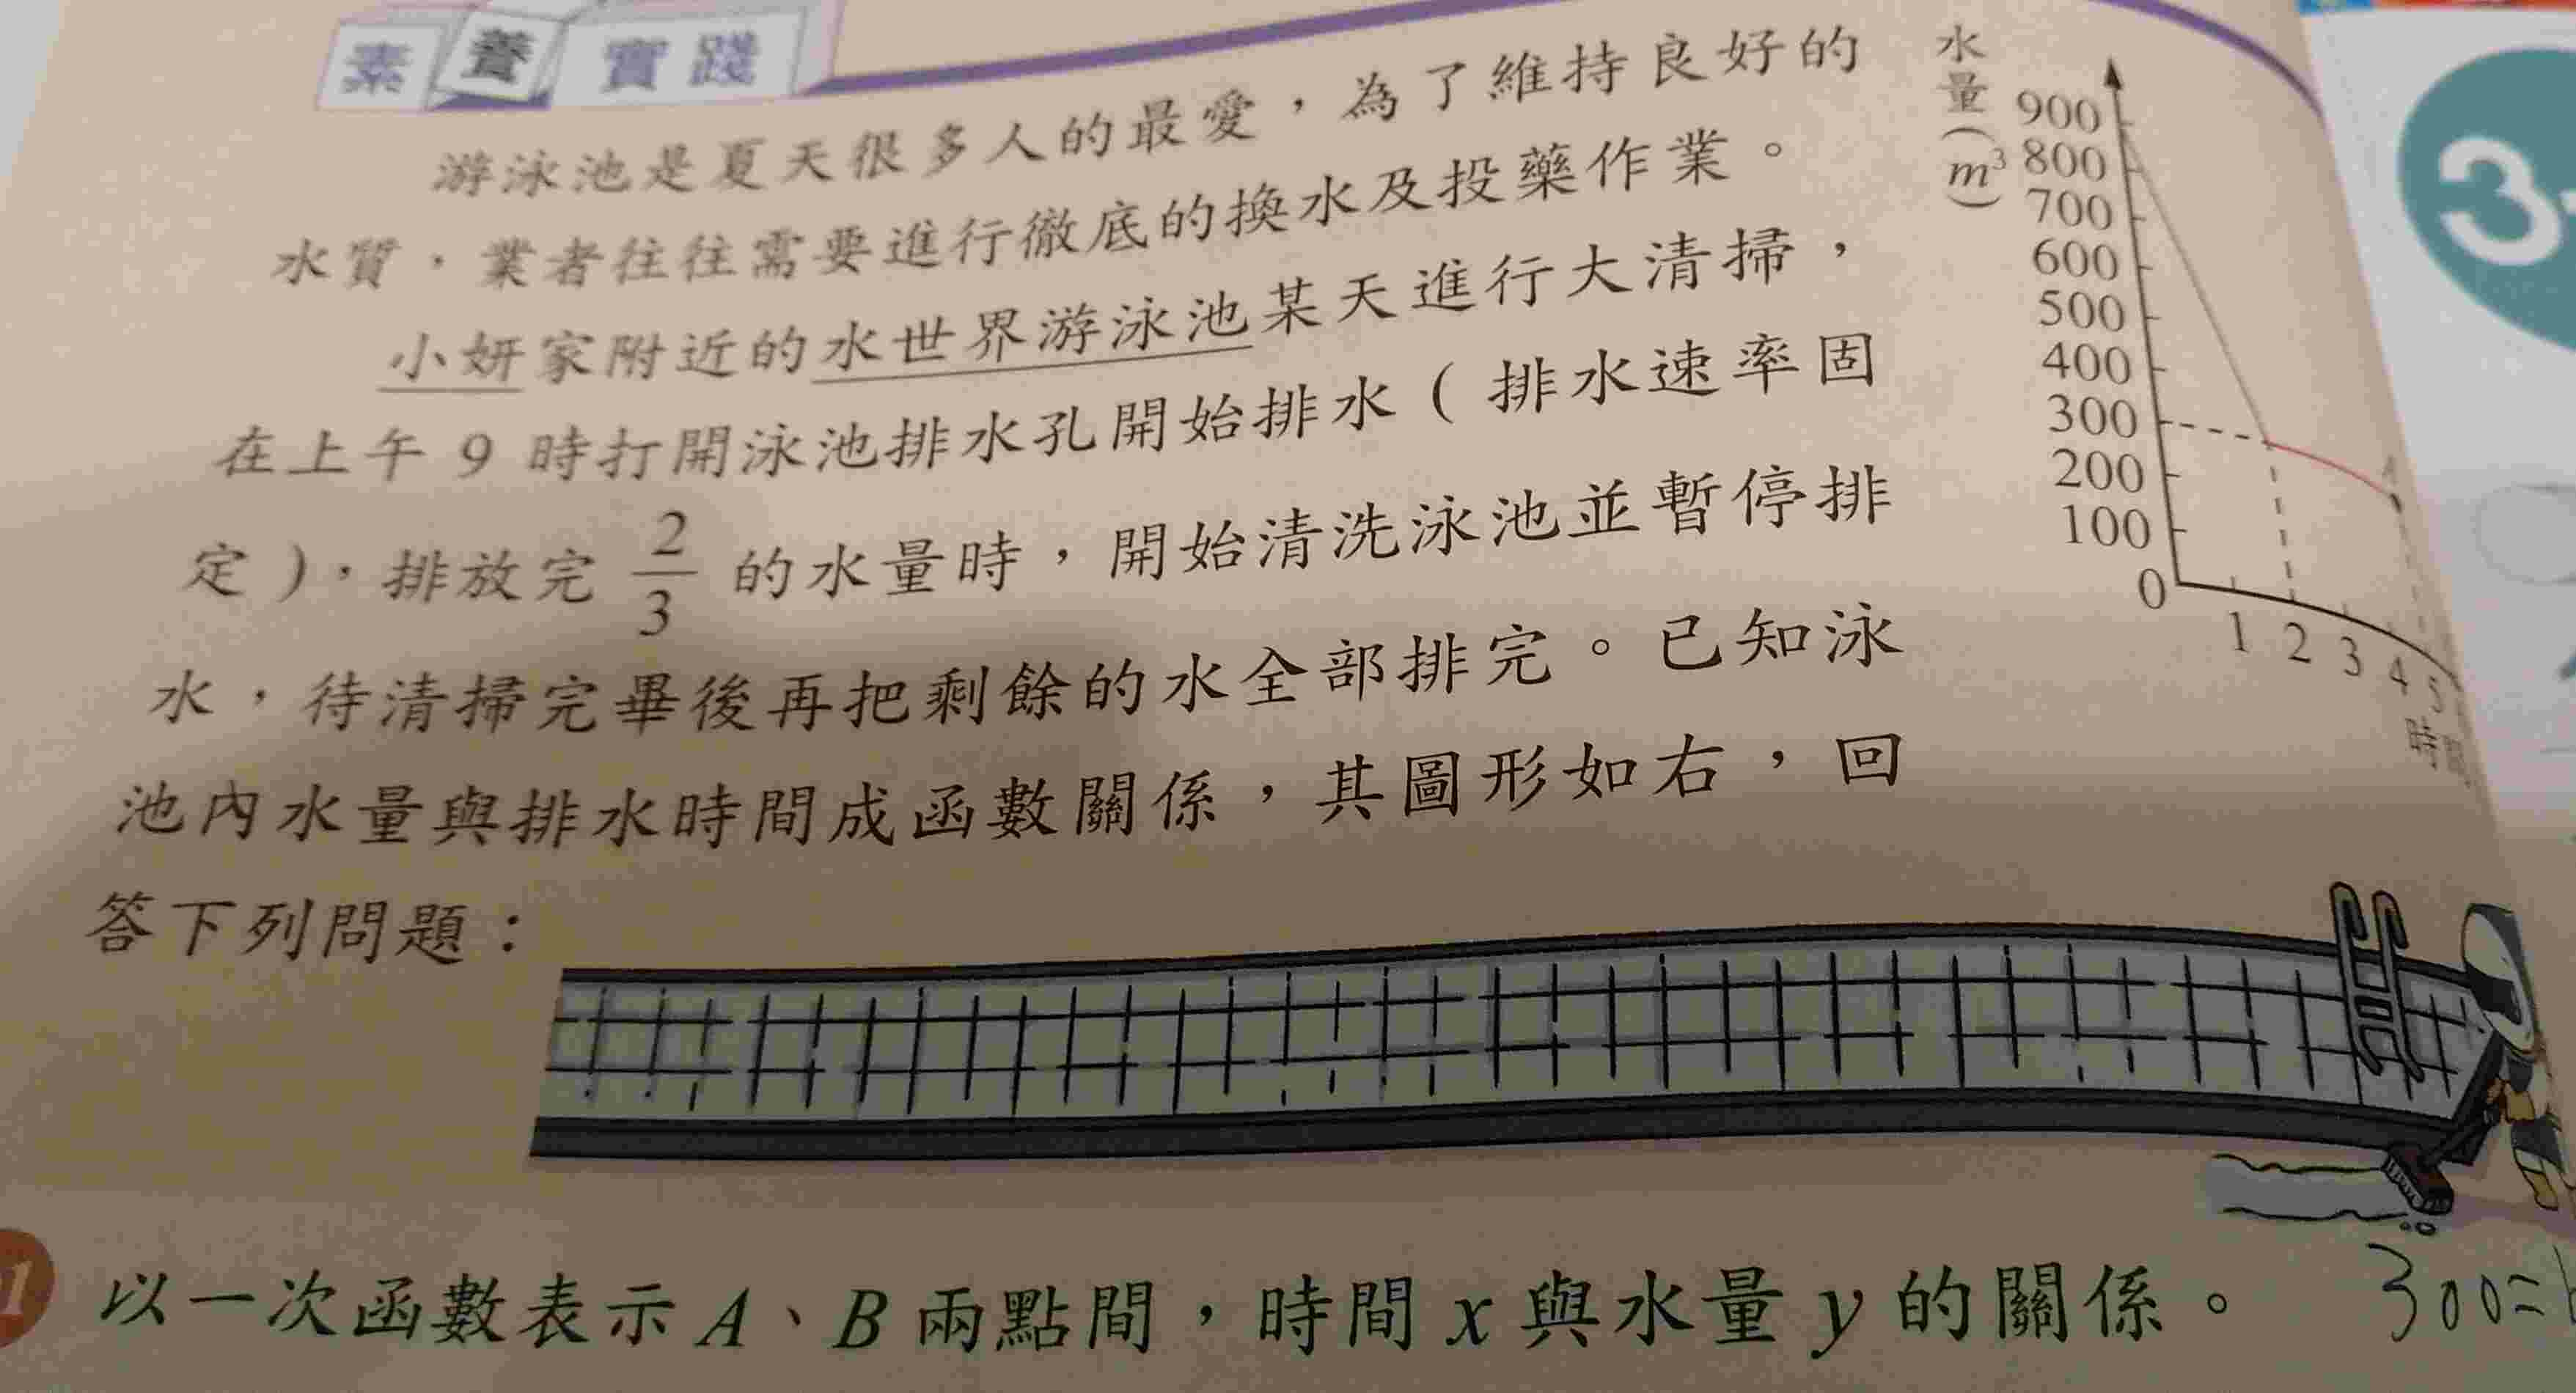 素養實踐
游泳池是夏天很多人的最愛，為了維持良好的
水質，業者往往需要進行徹底的換水及投藥作業。
小妍家附近的水世界游泳池某天進行大清掃，
在上午 9 時打開泳池排水孔開始排水（排水速率固
定），排放完 2/3 的水量時，開始清洗泳池並暫停排
水，待清掃完畢後再把剩餘的水全部排完。已知泳
池內水量與排水時間成函數關係，其圖形如右，回
答下列問題：
水量(m³)
900
800
700
600
500
400
300
200
100
0
1 2 3 4 5
時間
A
3
1 以一次函數表示 A、B 兩點間，時間 x 與水量 y 的關係。
300=